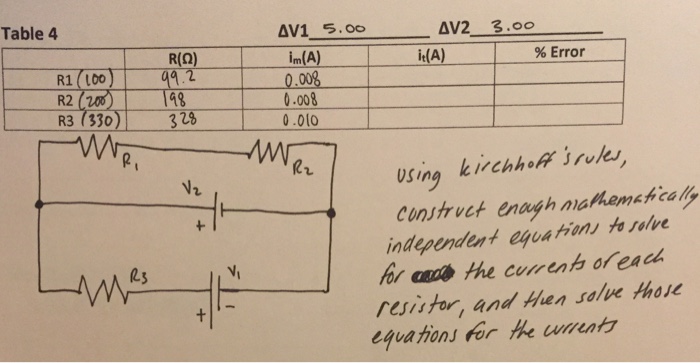 Table 4 ΔV1 5.00 ΔV2 3.00
R(Ω) im(A) it(A) % Error
R1 (100) 99.2 0.008
R2 (200) 198 0.008
R3 (330) 328 0.010
R1 R2
V2
+
R3 V1
+ -
using kirchhoff's rules,
construct enough mathematically
independent equations to solve
for the currents of each
resistor, and then solve those
equations for the currents